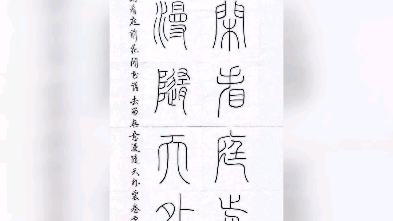 閑看庭前
漫隨天外
看庭前花開花去留無意漫隨天外雲卷